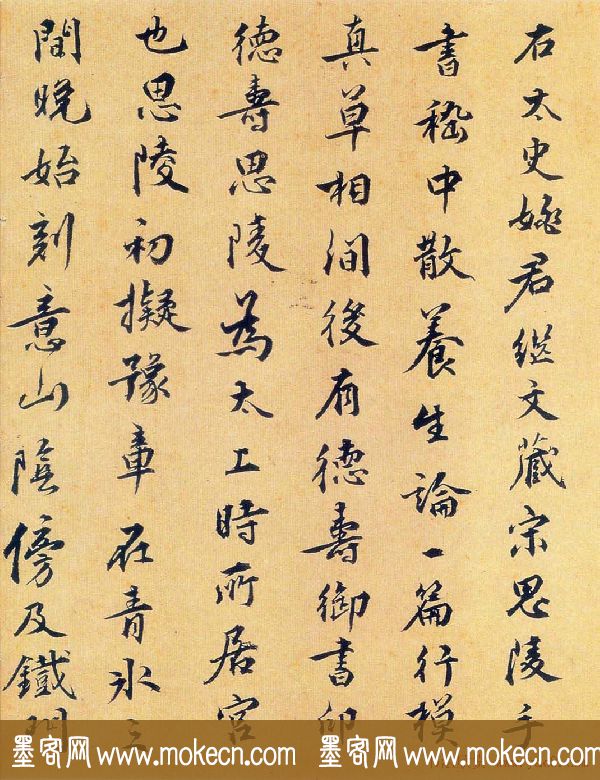 右太史姚君继文藏宋思陵手
書嵇中散養生論一篇行模
真草相間後有德壽御書印
德壽思陵為太上時所居宮
也思陵初擬豫章在青冰之
間晚始刻意山陰傍及鐵門
墨客网 www.mokecn.com 墨客网 www.mokecn.com